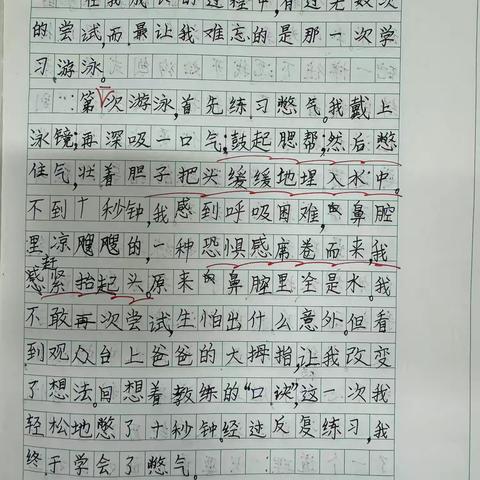 在我成长的过程中,有过无数次
的尝试,而最让我难忘的是那一次学
习游泳。
第次游泳,首先练习憋气。我戴上
泳镜;再深吸一口气;鼓起腮帮;然后憋
住气,壮着胆子把头缓缓地埋入水中。
不到十秒钟,我感到呼吸困难,鼻腔
里凉飕飕的,一种恐惧感席卷而来,我
赶
感紧抬起头。原来鼻腔里全是水。我
不敢再次尝试,生怕出什么意外。但看
到观众台上爸爸的大拇指,让我改变
了想法。回想着教练的“口诀”,这一次我
轻松地憋了十秒钟。经过反复练习,我
终于学会了憋气。